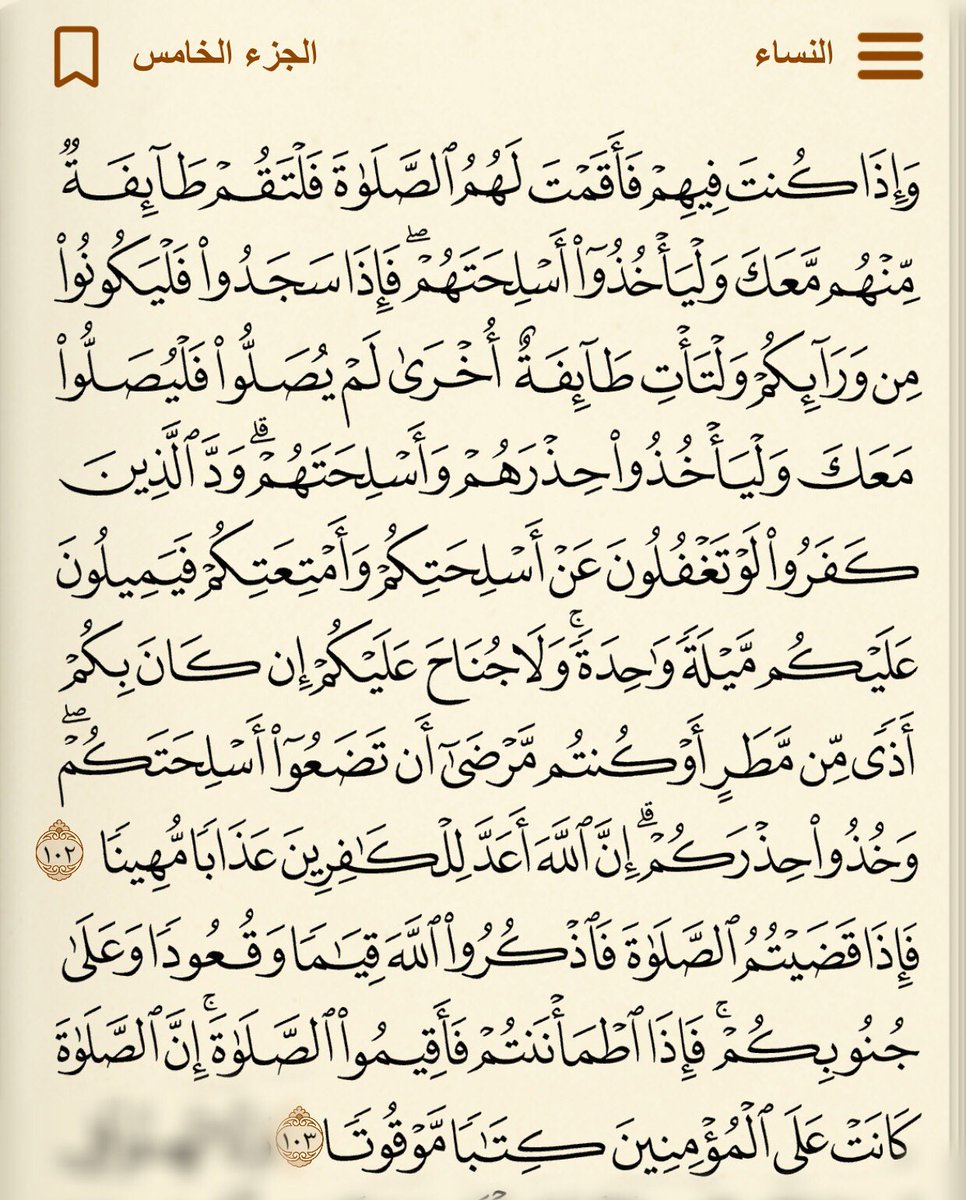 النساء الجزء الخامس
وَإِذَا كُنتَ فِيهِمْ فَأَقَمْتَ لَهُمُ ٱلصَّلَوٰةَ فَلْتَقُمْ طَآئِفَةٌ
مِّنْهُم مَّعَكَ وَلْيَأْخُذُوٓا۟ أَسْلِحَتَهُمْ ۖ فَإِذَا سَجَدُوا۟ فَلْيَكُونُوا۟
مِن وَرَآئِكُمْ وَلْتَأْتِ طَآئِفَةٌ أُخْرَىٰ لَمْ يُصَلُّوا۟ فَلْيُصَلُّوا۟
مَعَكَ وَلْيَأْخُذُوا۟ حِذْرَهُمْ وَأَسْلِحَتَهُمْ ۗ وَدَّ ٱلَّذِينَ
كَفَرُوا۟ لَوْ تَغْفُلُونَ عَنْ أَسْلِحَتِكُمْ وَأَمْتِعَتِكُمْ فَيَمِيلُونَ
عَلَيْكُم مَّيْلَةً وَٰحِدَةً ۚ وَلَا جُنَاحَ عَلَيْكُمْ إِن كَانَ بِكُمْ
أَذًى مِّن مَّطَرٍ أَوْ كُنتُم مَّرْضَىٰٓ أَن تَضَعُوٓا۟ أَسْلِحَتَكُمْ ۖ
وَخُذُوا۟ حِذْرَكُمْ ۗ إِنَّ ٱللَّهَ أَعَدَّ لِلْكَـٰفِرِينَ عَذَابًا مُّهِينًا ١٠٢
فَإِذَا قَضَيْتُمُ ٱلصَّلَوٰةَ فَٱذْكُرُوا۟ ٱللَّهَ قِيَـٰمًا وَقُعُودًا وَعَلَىٰ
جُنُوبِكُمْ ۚ فَإِذَا ٱطْمَأْنَنتُمْ فَأَقِيمُوا۟ ٱلصَّلَوٰةَ ۚ إِنَّ ٱلصَّلَوٰةَ
كَانَتْ عَلَى ٱلْمُؤْمِنِينَ كِتَـٰبًا مَّوْقُوتًا ١٠٣